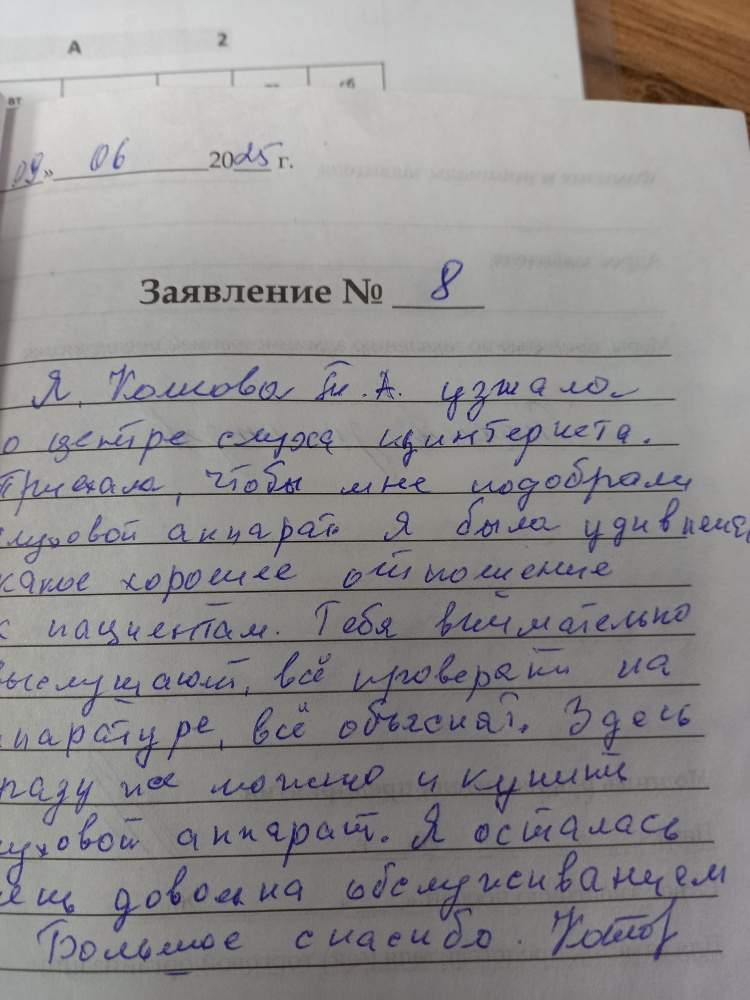 А 2
вт сб
09» 06 2025 г.
Заявление № 8
Я, А. узнала
о центре слуха из интернета.
Приехала, чтобы мне подобрали
слуховой аппарат. Я была удивлена,
какое хорошее отношение
к пациентам. Тебя внимательно
выслушают, всё проверят на
аппаратуре, всё объяснят. Здесь
сразу же можно и купить
слуховой аппарат. Я осталась
очень довольна обслуживанием
Большое спасибо.